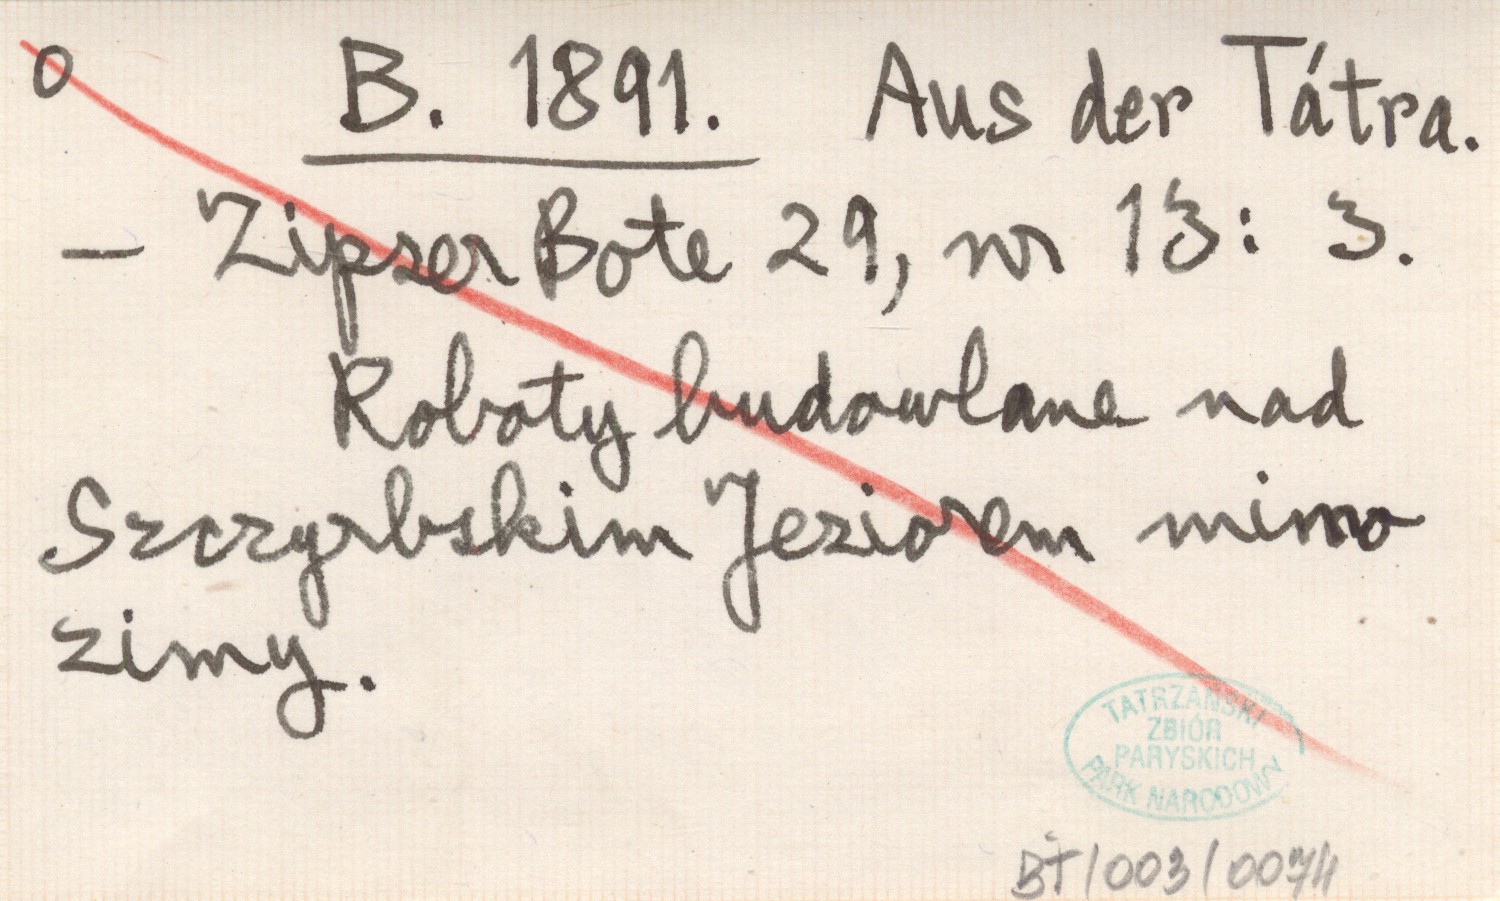 o B. 1891. Aus der Tátra.
— Zipser Bote 29, nr 13: 3.
Roboty budowlane nad
Szczyrbskim Jeziorem mimo
zimy.
TATRZAŃSKI
ZBIÓR
PARYSKICH
PARK NARODOWY
BT/003/0074